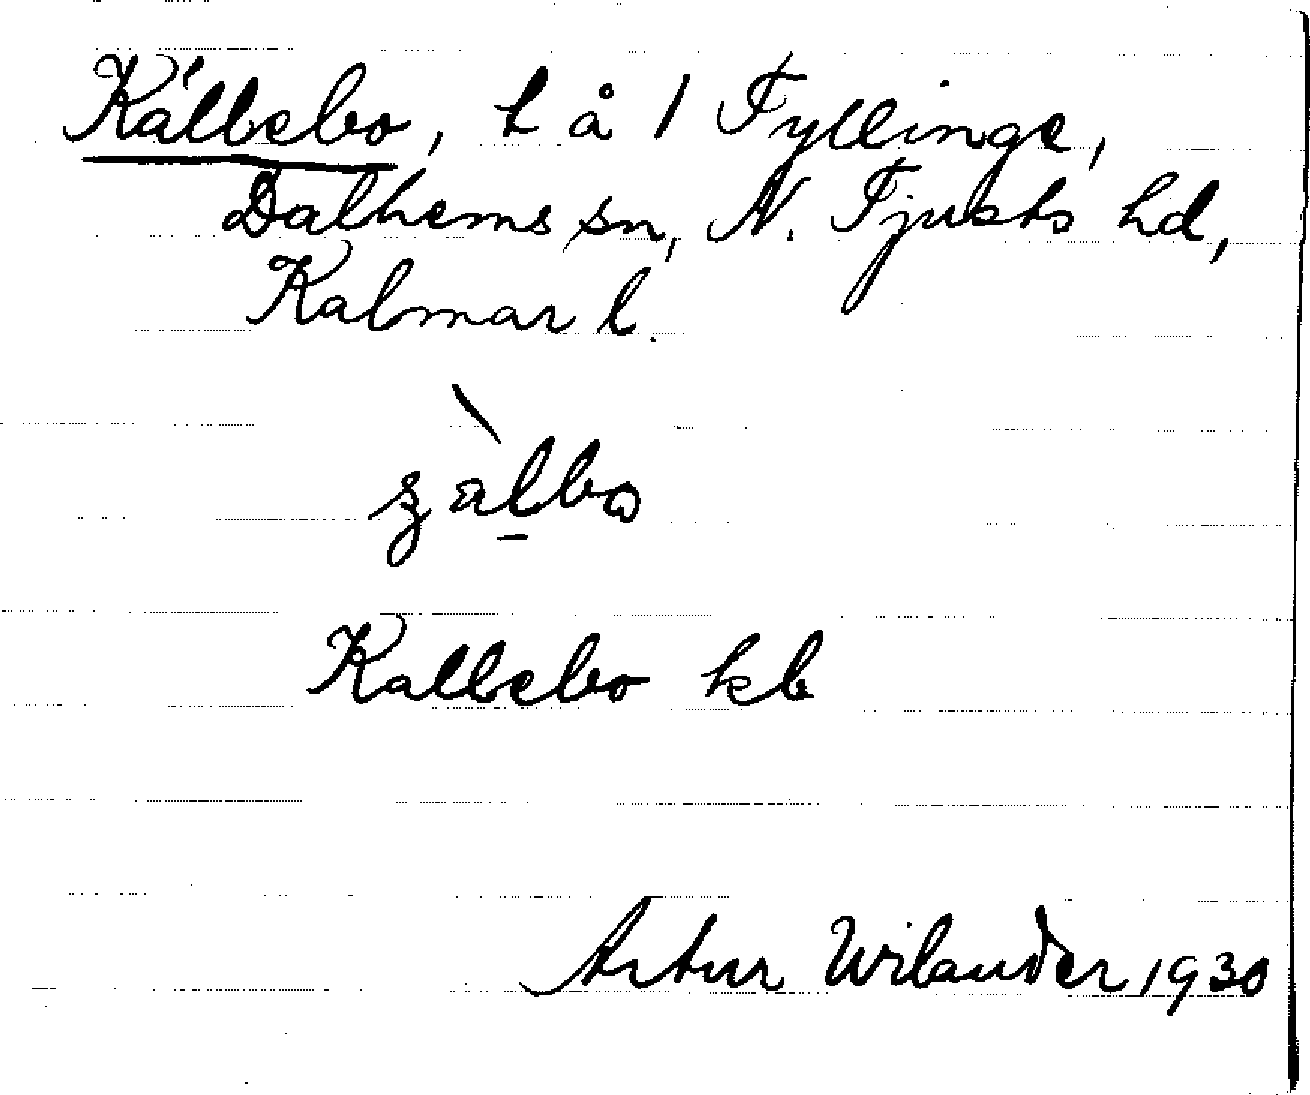 Källbebo, t å 1 Tyllinge,
Dalhems sn, N. Tjusts hd,
Kalmar l.
Kallbebo kb
Artur Wilander 1930